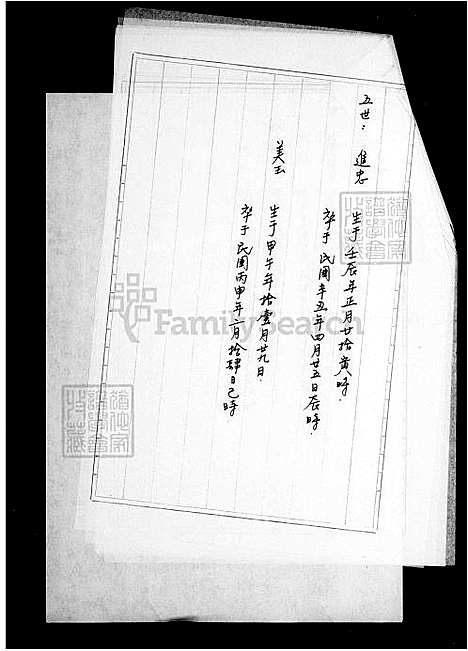 五世： 進忠
生于壬辰年正月廿拾寅時.
卒于民國辛丑年四月廿五日辰時.
美玉
生于甲午年拾壹月廿九日.
卒于民國丙申年六月拾肆日巳時
FamilySearch